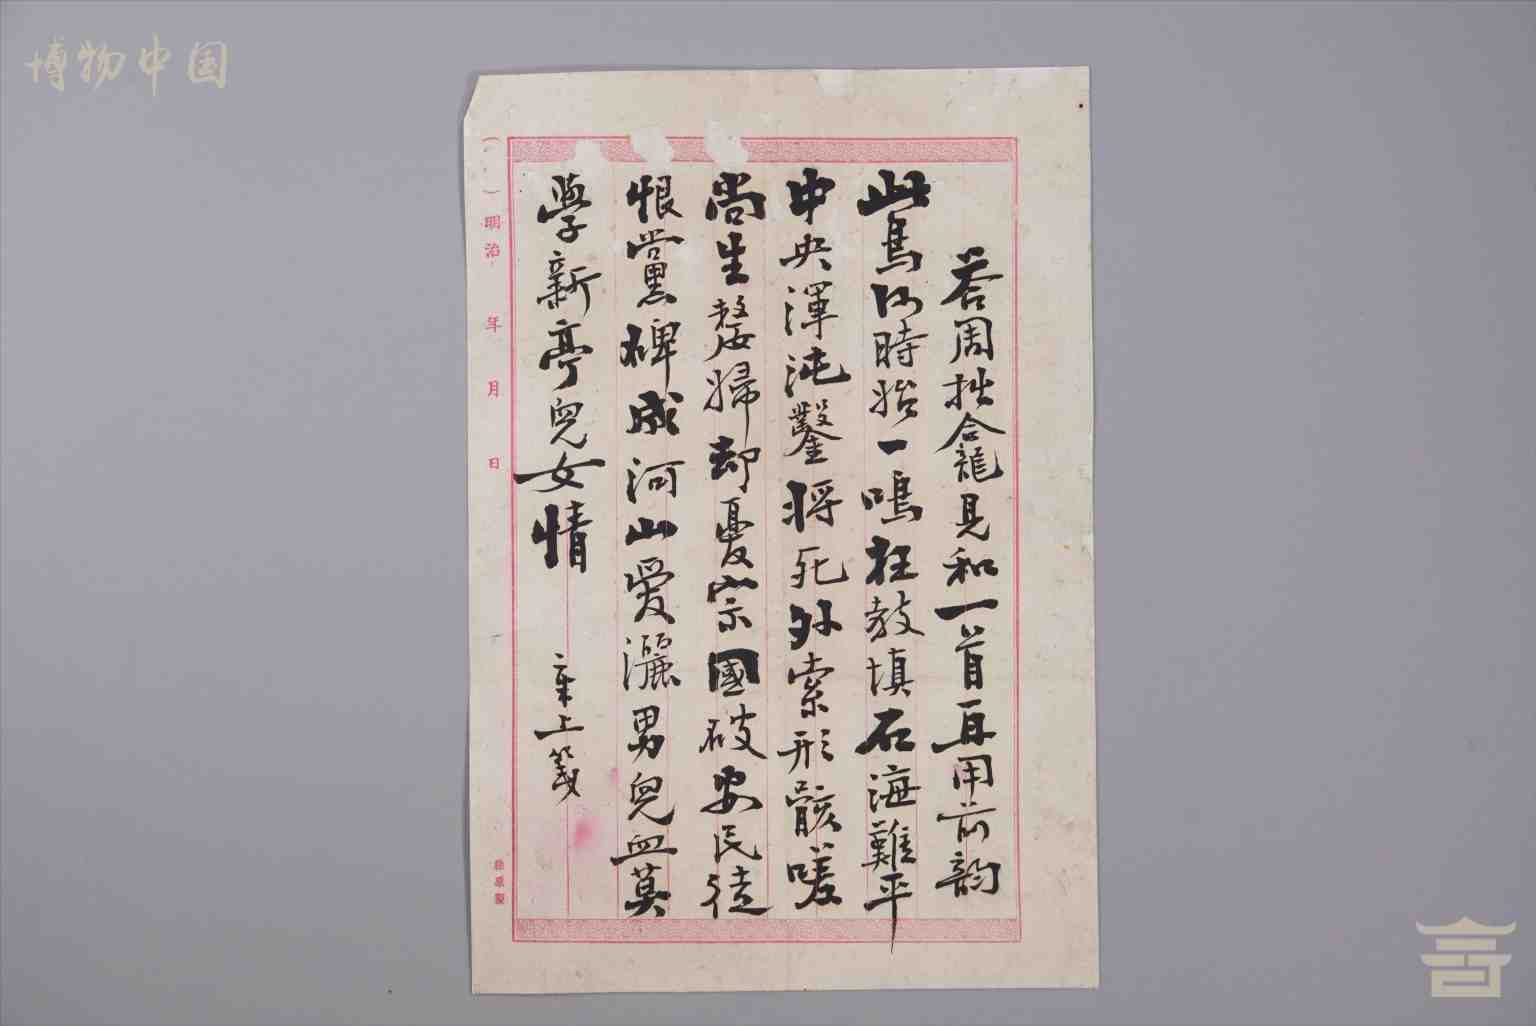 博物中国
荅周拙龕見和一首再用前韵
此鳥何時始一鳴枉教填石海難平
中央渾沌鑿將死外索形骸暖
尚生嫠婦却憂宗國破安民徒
恨黨碑成河山愛灑男兒血莫
學新亭兒女情 上箋
( ) 明治 年 月 日
榛原製